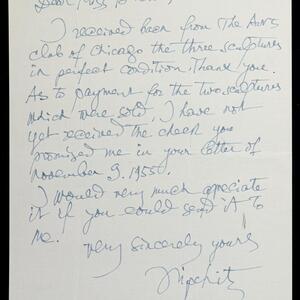 Dear Miss
I received been from The Arts
club of Chicago the three sculptures
in perfect condition. Thank you.
As to payment for the two sculptures
which were sold, I have not
yet received the check you
promised me in your letter of
november 9. 1955.
I would very much apreciate
it if you could send it to
me.
very sincerely yours
Lipchitz